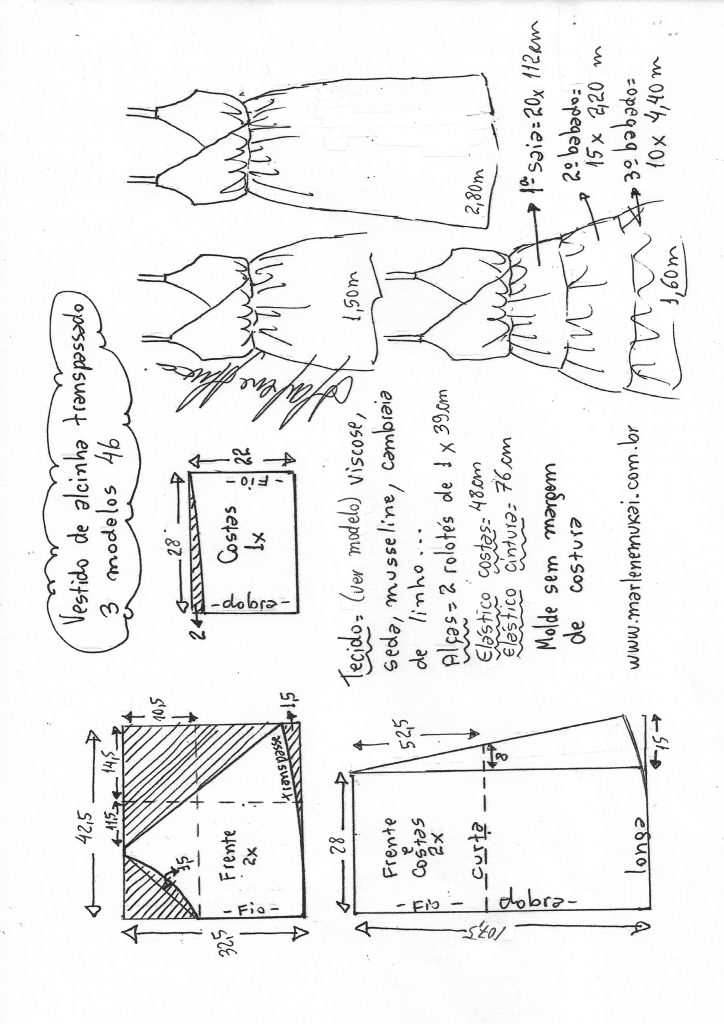 Vestido de alcinha transpassado
3 modelos 46
42,5
11,5
14,5
10,5
1,5
32,5
Frente
2x
-Fio-
transpasse
28
22
2
Costas
1x
-Fio-
-dobra-
28
52,5
8
107,5
15
Frente
e
Costas
2x
curta
longa
-Fio-
dobra-
Tecido= (ver modelo) viscose,
seda, musseline, cambraia
de linho...
Alças= 2 rolotês de 1 x 39cm
Elástico costas= 48cm
Elástico cintura= 76cm
Molde sem margem
de costura
www.marlenemukai.com.br
1,50m
2,80m
1,60m
1ª saia=20x 112cm
2º babado=
15 x 2,20 m
3º babado=
10x 4,40m